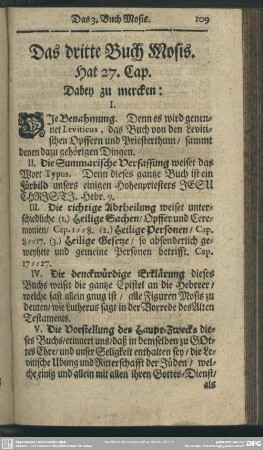 Das 3. Buch Mosis. 109
Das dritte Buch Mosis.
Hat 27. Cap.
Dabey zu mercken:
I.
DIe Benahmung. Denn es wird genen-
net Leviticus, das Buch von den Leviti-
schen Opffern und Priesterthum/ sammt
denen dazu gehörigen Dingen.
II. Die Summarische Verfassung weiset das
Wort Typus. Denn dieses gantze Buch ist ein
Fürbild unsers einigen Hohenpriesters JESU
CHRISTI. Hebr. 9.
III. Die richtige Abtheilung weiset unter-
schiedliche (1.) Heilige Sachen/ Opffer und Cere-
monien/ Cap. 1=8. (2.) Heilige Personen/ Cap.
8=17. (3.) Heilige Gesetze/ so absonderlich ge-
weyhete und gemeine Personen betrifft. Cap.
17=27.
IV. Die denckwürdige Erklärung dieses
Buchs weiset die gantze Epistel an die Hebreer/
welche fast allein gnug ist/ alle Figuren Mosis zu
deuten/ wie Lutherus sagt in der Vorrede des Alten
Testaments.
V. Die Vorstellung des Haupt-Zwecks die-
ses Buchs/ erinnert uns/ daß in demselben zu GOt-
tes Ehre/ und unser Seligkeit enthalten sey/ die Le-
vitische Ubung und Ritterschafft der Jüden/ wel-
che einig und allein mit allen ihren Gottes-Dienst/
als